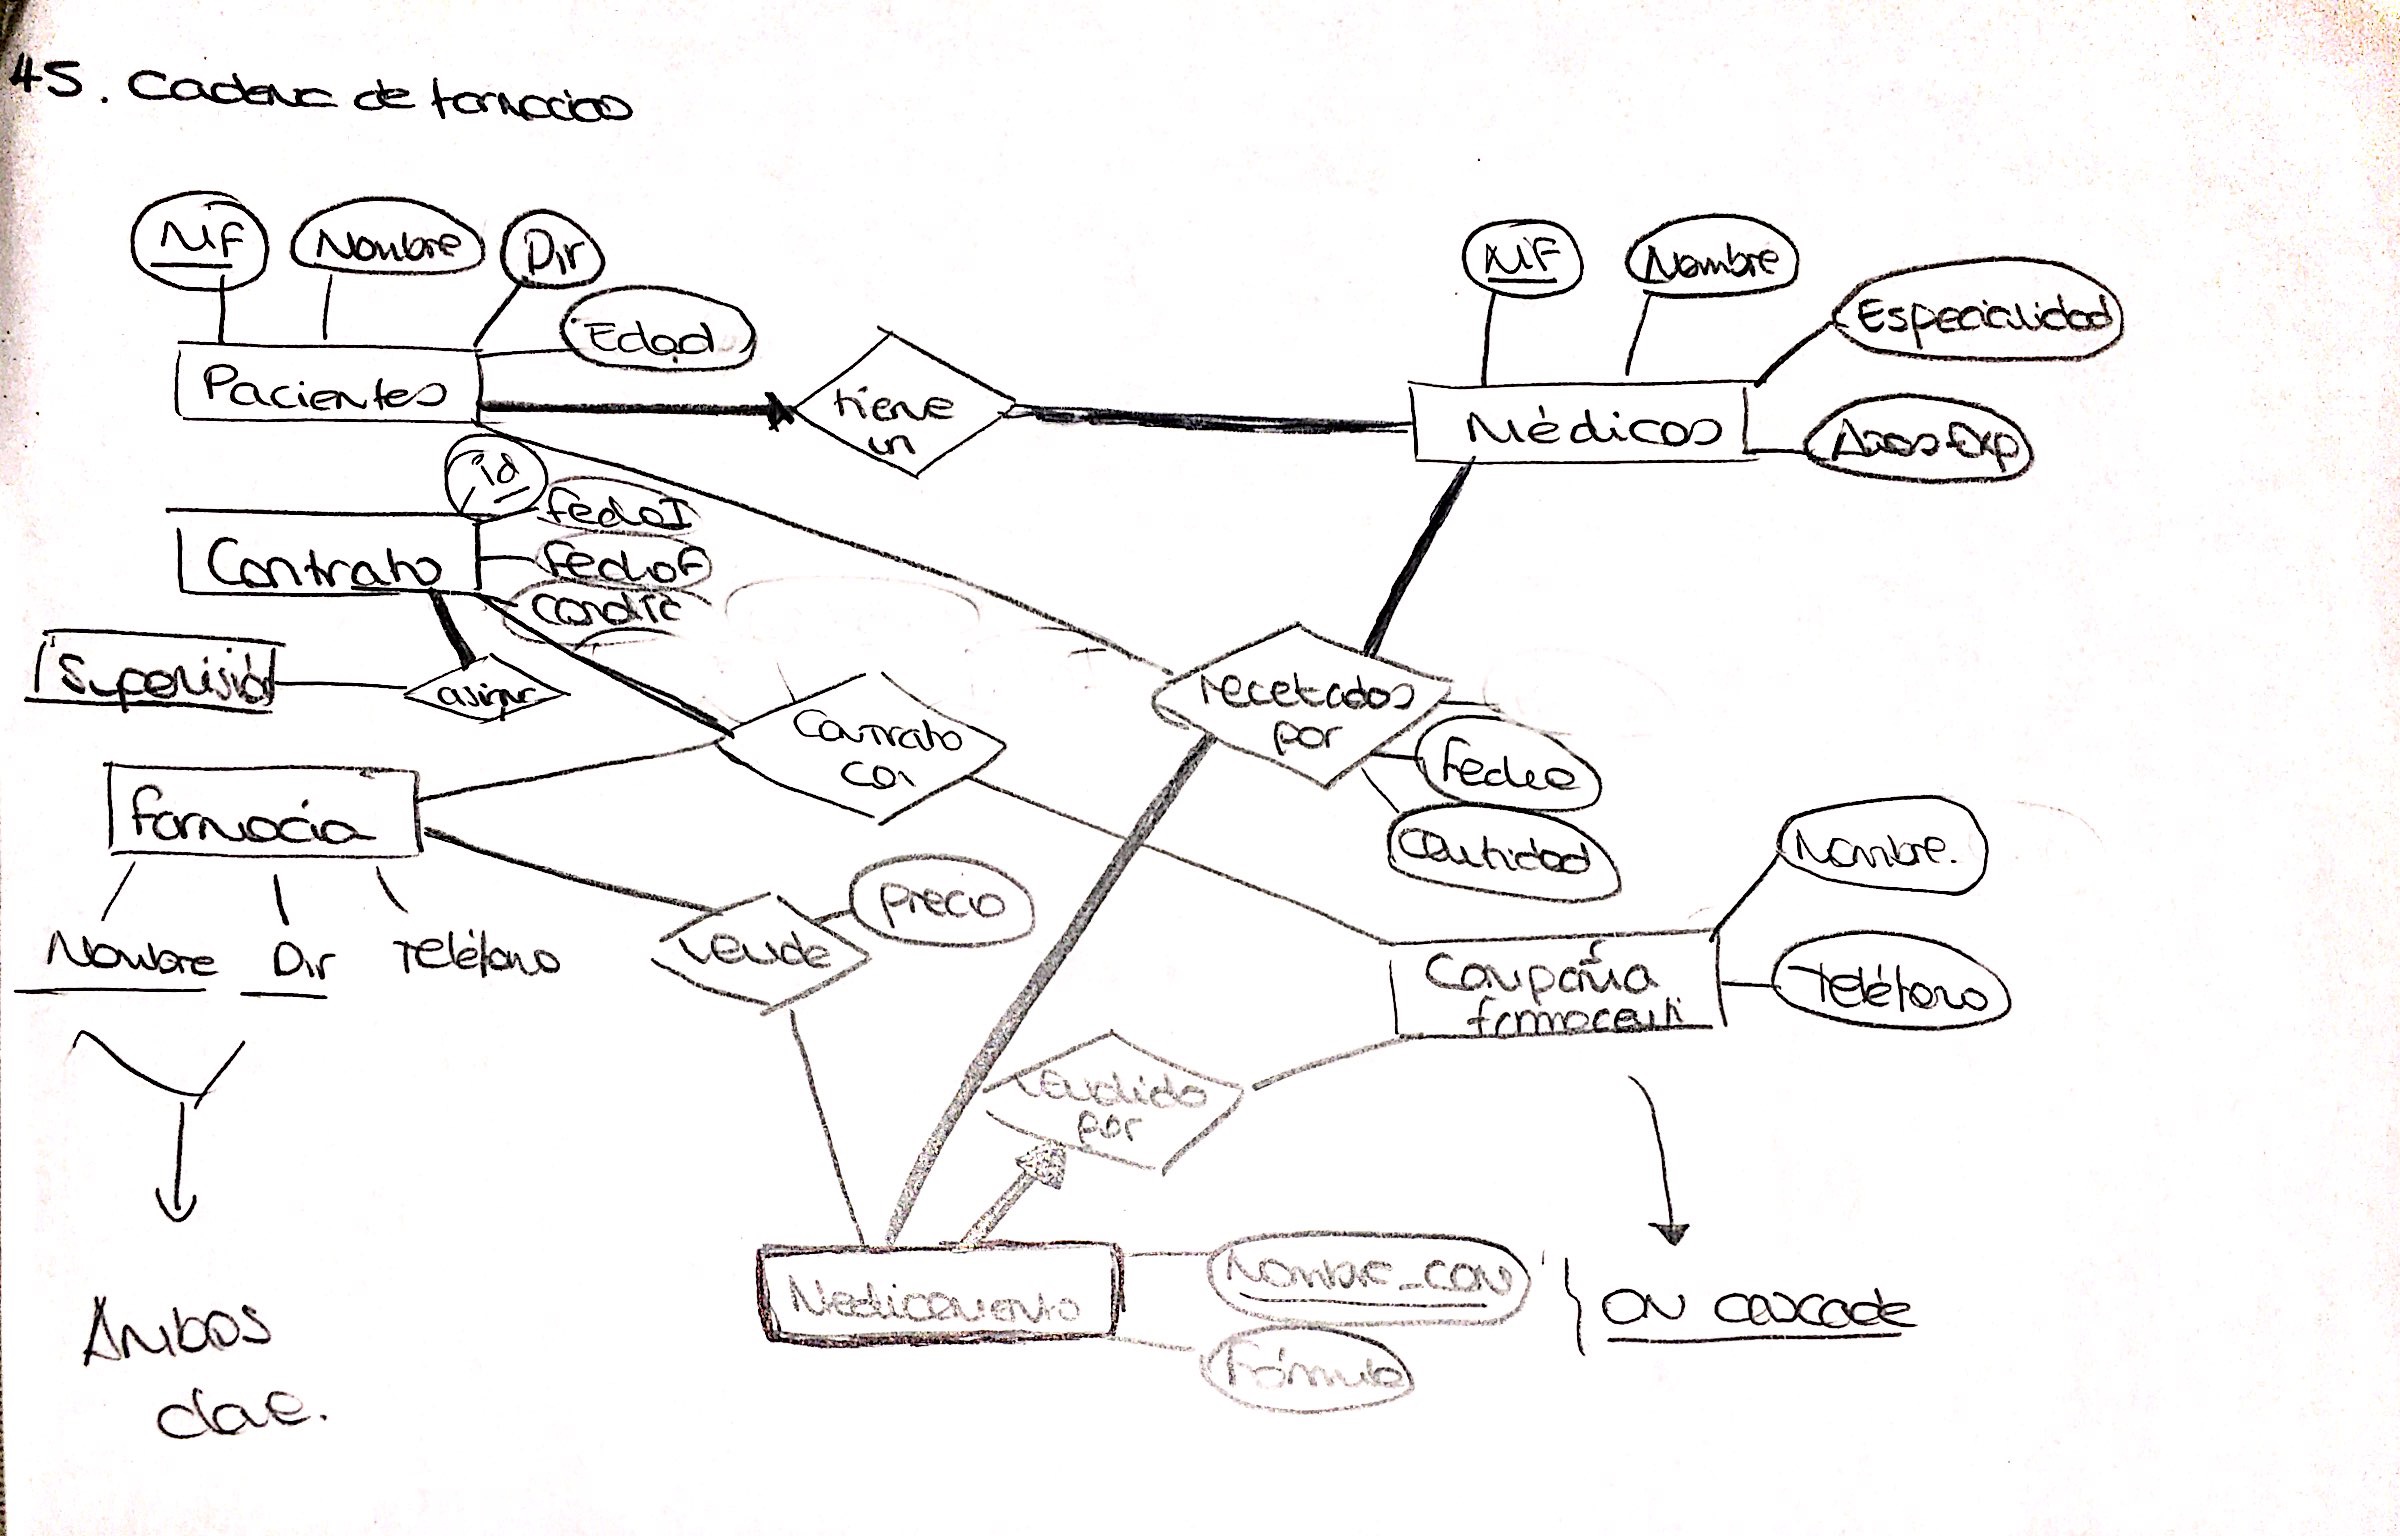 45. Cadena de farmacias
NIF Nombre Dir
Edad
Pacientes
tiene
un
NIF Nombre
Especialidad
Médicos
Años Exp
id
fechaI
Contrato
fechaF
condic
Supervisión
asigna
Contrato
con
recetados
por
Fecha
Cantidad
farmacia
Nombre Dir Teléfono
Vende
precio
Nombre.
Compañia
farmaceuti
Teléfono
vendido
por
Medicamento
Nombre_com
Fórmula
ON cascade
Ambos
clave.